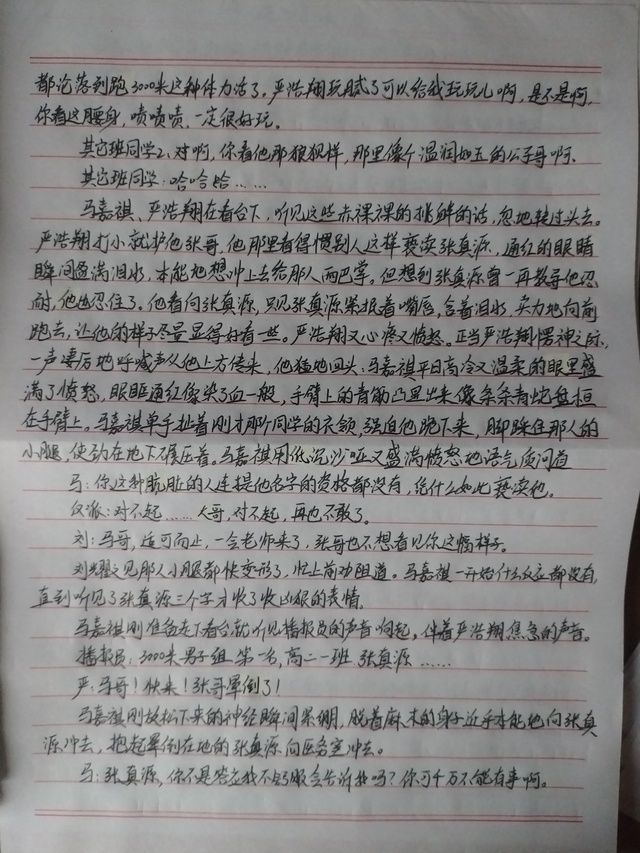 都论落到跑3000米这种体力活了。严浩翔玩腻了可以给我玩玩儿啊，是不是啊，
你看这腰身，啧啧啧，一定很好玩。
其它班同学2：对啊，你看他那狼狈样，那里像个温润如玉的公子哥啊。
其它班同学：哈哈哈……
马嘉祺、严浩翔在看台下，听见这些赤裸裸的挑衅的话，忽地转过头去。
严浩翔打小就护他张哥，他那里看得惯别人这样亵渎张真源，通红的眼睛
瞬间盈满泪水，本能地想冲上去给那人两巴掌。但想到张真源曾一再教导他忍
耐，他也忍住了。他看向张真源，只见张真源紧抿着嘴唇，含着泪水，实力地向前
跑去，让他的样子尽量显得好看一些。严浩翔又心疼又愤怒。正当严浩翔愣神之际，
一声凄厉地呼喊声从他上方传来，他猛地回头：马嘉祺平日高冷又温柔的眼里盛
满了愤怒，眼眶通红像染了血一般，手臂上的青筋凸显出来像条条青蛇盘桓
在手臂上。马嘉祺单手扯着刚才那个同学的衣领，强迫他跪下来，脚踩住那人的
小腿，使劲在地下碾压着。马嘉祺用低沉沙哑又盛满愤怒地语气质问道
马：你这种肮脏的人连提他名字的资格都没有，凭什么如此亵渎他。
对不起……大哥，对不起，再也不敢了。
刘：马哥，适可而止，一会老师来了，张哥也不想看见你这幅样子。
刘耀文见那人小腿都快变形了，忙上前劝阻道。马嘉祺一开始什么反应都没有，
直到听见了张真源三个字才收了收凶狠的表情。
马嘉祺刚准备走下看台就听见播报员的声音响起，伴着严浩翔焦急的声音。
播报员：3000米男子组 第一名，高二一班 张真源……
严：马哥！快来！张哥晕倒了！
马嘉祺刚放松下来的神经瞬间紧绷，脱着麻木的身子近乎本能地向张真
源冲去，抱起晕倒在地的张真源向医务室冲去。
马：张真源，你不是答应我不舒服会告诉我吗？你可千万不能有事啊。